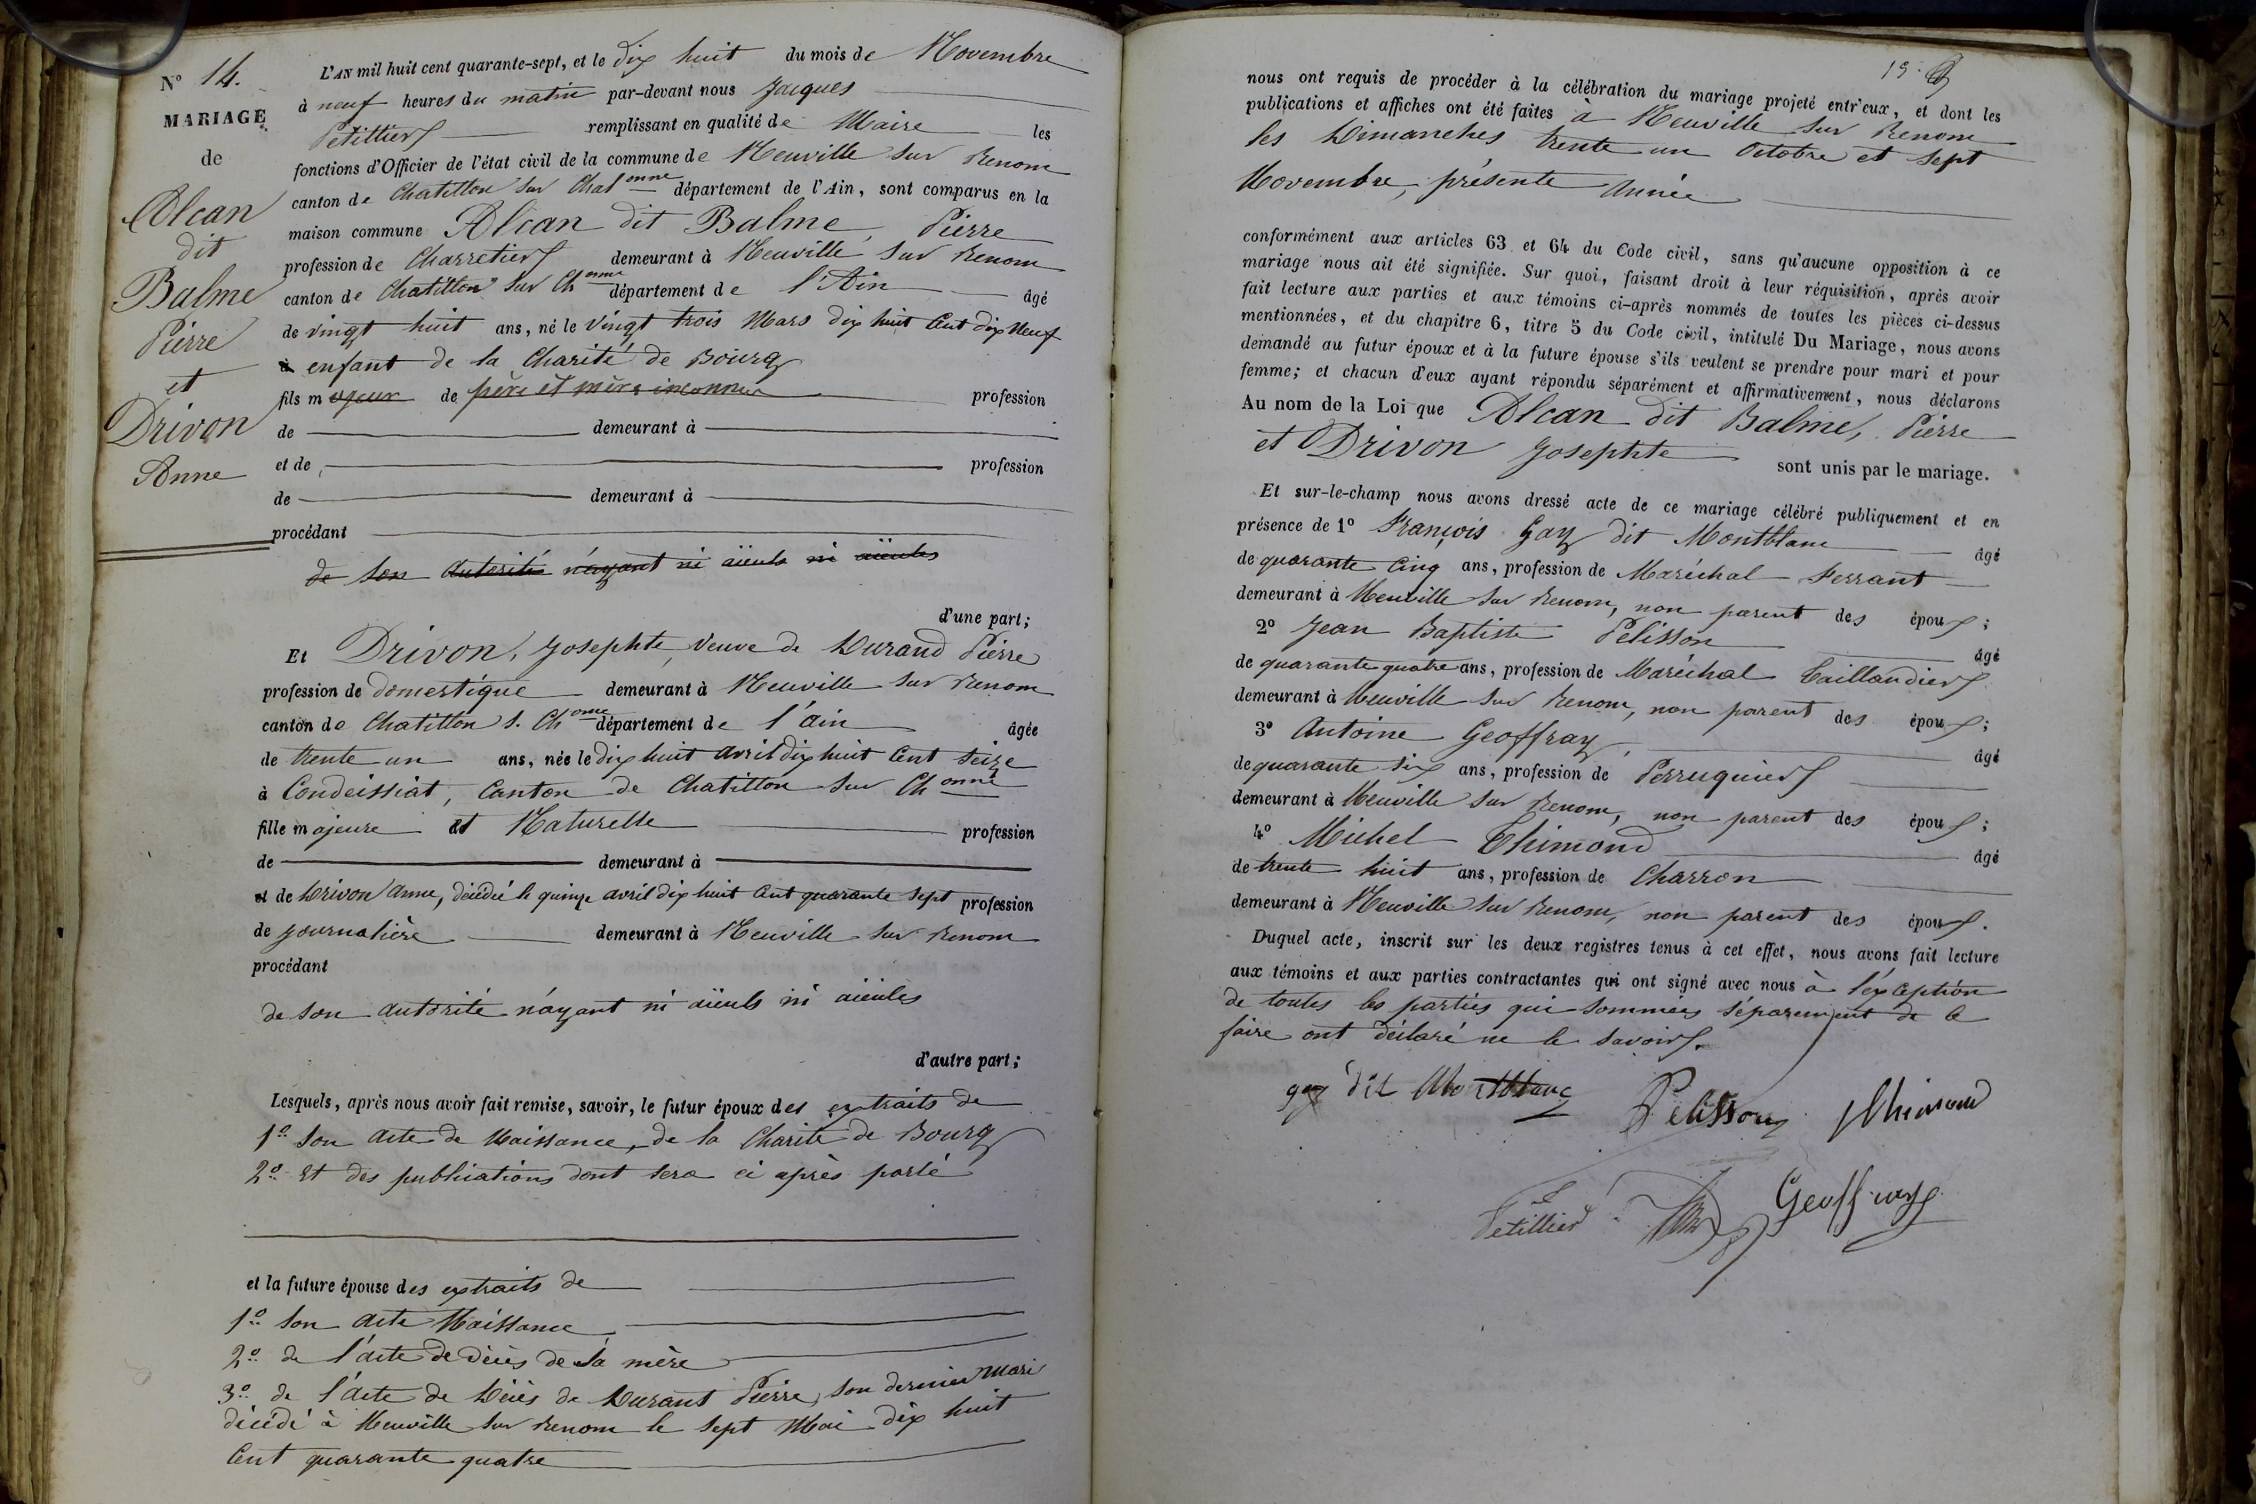 N° 14.
MARIAGE
de
Alcan
dit
Balme
Pierre
et
Drivon
Anne
L'AN mil huit cent quarante-sept, et le dix huit du mois de Novembre
à neuf heures du matin par-devant nous Jacques
Petillier remplissant en qualité de Maire les
fonctions d'Officier de l'état civil de la commune de Neuville sur Renom
canton de Chatillon sur Chalonne département de l'Ain, sont comparus en la
maison commune Alcan dit Balme, Pierre
profession de Charretier demeurant à Neuville sur Renom
canton de Chatillon sur Chonne département de l'Ain âgé
de vingt huit ans, né le vingt trois Mars dix huit Cent dix Neuf
à enfant de la Charité de Bourg
fils majeur de père et mère inconnus profession
de demeurant à
et de profession
de demeurant à
procédant
de son autorité n'ayant ni aïeuls ni aïeules
d'une part;
Et Drivon, Josephte, veuve de Durand Pierre
profession de domestique demeurant à Neuville sur Renom
canton de Chatillon s. Chonne département de l'ain âgée
de trente un ans, née le dix huit avril dix huit Cent seize
à Condeissiat, Canton de Chatillon sur Chonne
fille majeure et Naturelle profession
de demeurant à
et de Drivon Anne, décédée le quinze avril dix huit Cent quarante sept profession
de journalière demeurant à Neuville sur Renom
procédant
de son autorité n'ayant ni aïeuls ni aïeules
d'autre part;
Lesquels, après nous avoir fait remise, savoir, le futur époux des extraits de
1° son acte de Naissance, de la Charité de Bourg
2° Et des publications dont sera ci après parlé
et la future épouse des extraits de
1° son acte Naissance
2° de l'acte de décès de sa mère
3° de l'acte de Décès de Durant Pierre, son dernier Mari
décédé à Neuville sur Renom le sept Mai dix huit
Cent quarante quatre
19
nous ont requis de procéder à la célébration du mariage projeté entr'eux, et dont les
publications et affiches ont été faites à Neuville sur Renom
les Dimanches trente un Octobre et sept
Novembre, présente Année
conformément aux articles 63 et 64 du Code civil, sans qu'aucune opposition à ce
mariage nous ait été signifiée. Sur quoi, faisant droit à leur réquisition, après avoir
fait lecture aux parties et aux témoins ci-après nommés de toutes les pièces ci-dessus
mentionnées, et du chapitre 6, titre 5 du Code civil, intitulé Du Mariage, nous avons
demandé au futur époux et à la future épouse s'ils veulent se prendre pour mari et pour
femme; et chacun d'eux ayant répondu séparément et affirmativement, nous déclarons
Au nom de la Loi que Alcan dit Balme, Pierre
et Drivon Josephte sont unis par le mariage.
Et sur-le-champ nous avons dressé acte de ce mariage célébré publiquement et en
présence de 1° François Gay dit Montblanc âgé
de quarante Cinq ans, profession de Maréchal Ferrant
demeurant à Neuville sur Renom, non parent des époux;
2° Jean Baptiste Pelisson âgé
de quarante quatre ans, profession de Maréchal Taillandier
demeurant à Neuville sur Renom, non parent des époux;
3° Antoine Geoffray, âgé
de quarante six ans, profession de Perruquier
demeurant à Neuville sur Renom, non parent des époux;
4° Michel Thimond âgé
de trente huit ans, profession de Charron
demeurant à Neuville sur Renom, non parent des époux.
Duquel acte, inscrit sur les deux registres tenus à cet effet, nous avons fait lecture
aux témoins et aux parties contractantes qui ont signé avec nous à l'exception
de toutes les parties qui sommées séparement de le
faire ont déclaré ne le savoir.
gay dit Montblanc Pelisson Thimond
Petillier Geoffray